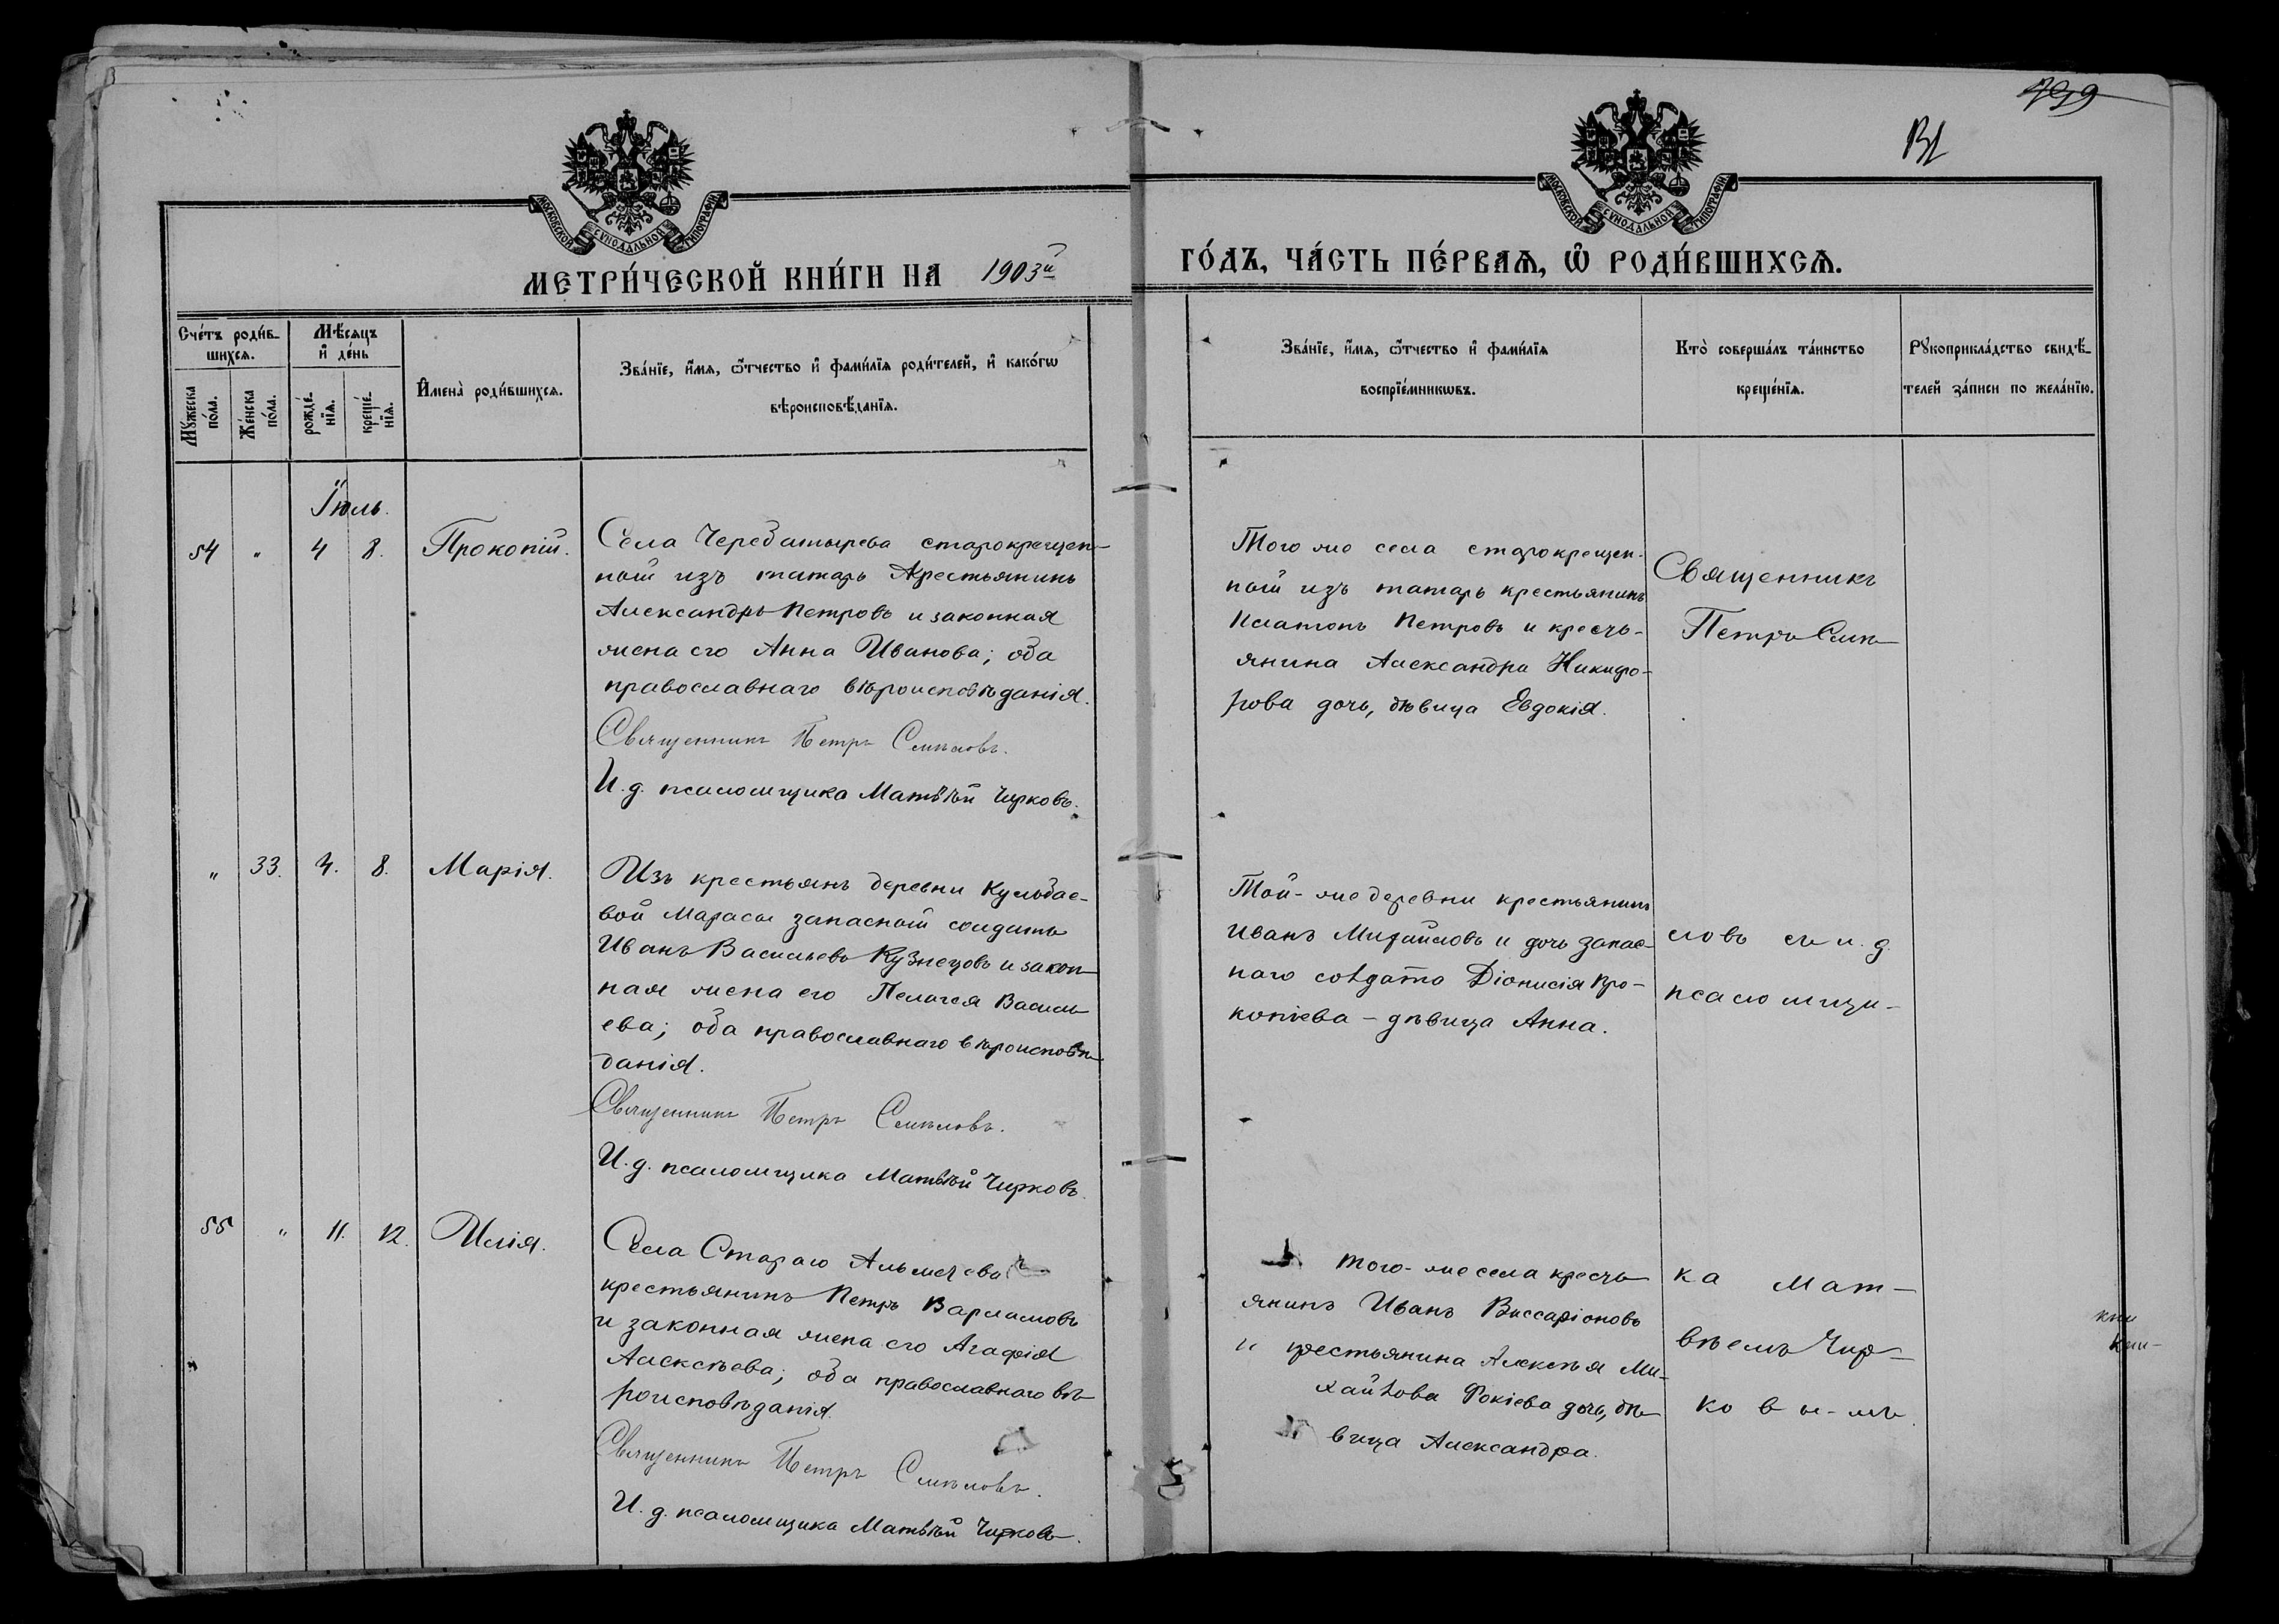 799
МОСКОВСКОЙ СѴНОДАЛЬНОЙ ТИПОГРАФІИ
МОСКОВСКОЙ СѴНОДАЛЬНОЙ ТИПОГРАФІИ
МЕТРИ́ЧЕСКОЙ КНИ́ГИ НА 1903й ГО́ДЪ, ЧА́СТЬ ПЕ́РВАѦ, Ѡ҆ РОДИ́ВШИХСѦ.
Сче́тъ роди́в-
шихсѧ.
Мꙋ́жеска по́ла.
Же́нска по́ла.
Мѣ́сѧцъ
и҆ де́нь
рожде́-
нїѧ.
креще́-
нїѧ.
И҆мена̀ роди́вшихсѧ.
Зва́нїе, и҆́мѧ, ѻ҆́тчество и҆ фами́лїѧ роди́телей, и҆ како́гѡ
вѣроисповѣ́данїѧ.
Зва́нїе, и҆́мѧ, ѻ҆́тчество и҆ фами́лїѧ
воспрїе́мникѡвъ.
Кто̀ соверша́лъ та́инство
креще́нїѧ.
Рꙋкоприкла́дство свидѣ́-
телей за́писи по жела́нїю.
Іюль.
54 " 4 8. Прокопій.
Села Черебатырева старокрещен-
ный изъ татаръ крестьянинъ
Александръ Петровъ и законная
жена его Анна Иванова; оба
православнаго вѣроисповѣданія.
Священникъ Петръ Смѣловъ.
И. д. псаломщика Матвѣй Чирковъ.
Того же села старокрещен-
ный изъ татаръ крестьянинъ
Платонъ Петровъ и кресть-
янина Александра Никифо-
рова дочь, дѣвица Евдокія.
Священникъ
Петръ Смѣ-
" 33. 4. 8. Марія.
Изъ крестьянъ деревни Кульбае-
вой Марасы запасный солдатъ
Иванъ Васильевъ Кузнецовъ и закон-
ная жена его Пелагея Василь-
ева; оба православнаго вѣроисповѣ-
данія.
Священникъ Петръ Смѣловъ.
И. д. псаломщика Матвѣй Чирковъ.
Той-же деревни крестьянинъ
Иванъ Михайловъ и дочь запас-
наго солдата Діонисія Про-
копіева - дѣвица Анна.
ловъ съ и. д.
псаломщи-
55 " 11. 12. Илія.
Села Стараго Альметева
крестьянинъ Петръ Варламовъ
и законная жена его Агафія
Алексѣева; оба православнаго вѣ-
роисповѣданія.
Священникъ Петръ Смѣловъ.
И. д. псаломщика Матвѣй Чирковъ.
Того-же села кресть-
янинъ Иванъ Виссаріоновъ
и крестьянина Алексѣя Ми-
хайлова Фокіева дочь, дѣ-
вица Александра.
ка Мат-
вѣемъ Чир-
ковы-мъ.